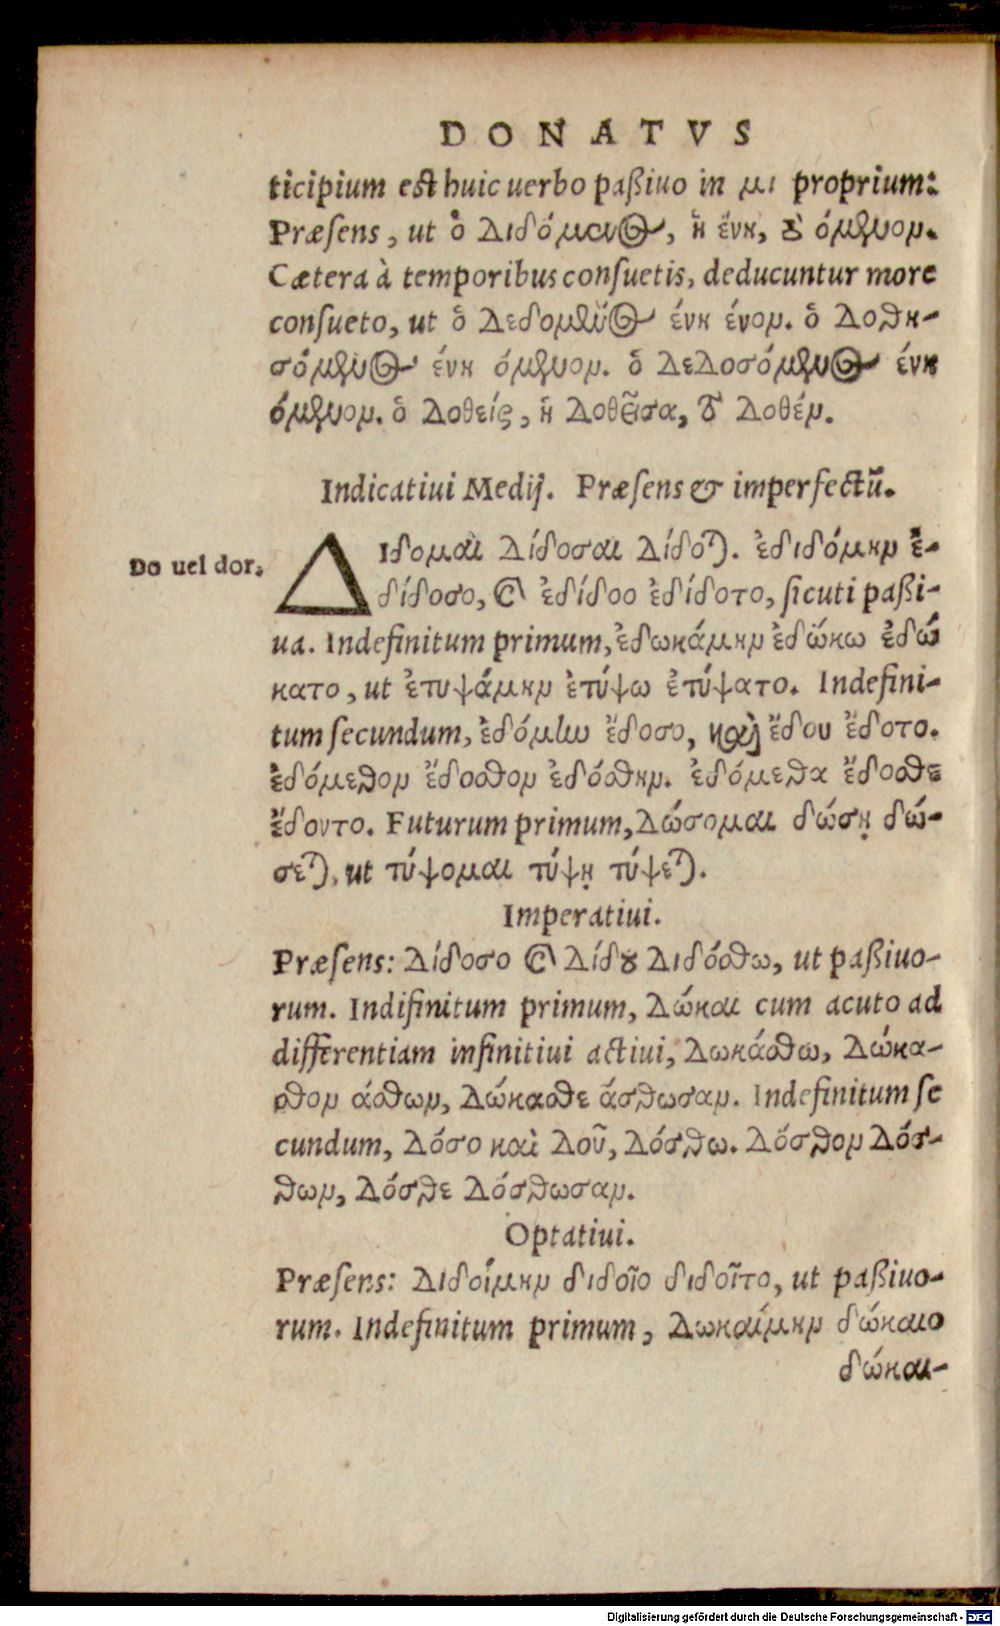 DONATVS
ticipium est huic uerbo paßiuo in μι proprium:
Præsens, ut ὁ Διδόμενος, ἡ ένη, τὸ όμενον.
Cætera à temporibus consuetis, deducuntur more
consueto, ut ὁ Δεδομένος ένη ένον. ὁ Δοθη-
σόμενος ένη όμενον. ὁ Δεδοσόμενος ένη
όμενον. ὁ Δοθείς, ἡ Δοθεῖσα, τὸ Δοθέν.
Indicatiui Medij. Præsens & imperfectũ.
Do uel dor.
ΔΙδομαι Δίδοσαι Δίδοται. ἐδιδόμην ἐ-
δίδοσο, καὶ ἐδίδοο ἐδίδοτο, sicuti paßi-
ua. Indefinitum primum, ἐδωκάμην ἐδώκω ἐδώ
κατο, ut ἐτυψάμην ἐτύψω ἐτύψατο. Indefini-
tum secundum, ἐδόμην ἔδοσο, καὶ ἔδου ἔδοτο.
ἐδόμεθον ἔδοσθον ἐδόσθην. ἐδόμεθα ἔδοσθε
ἔδοντο. Futurum primum, Δώσομαι δώσῃ δώ-
σεται, ut τύψομαι τύψῃ τύψεται.
Imperatiui.
Præsens: Δίδοσο καὶ Δίδου Διδόσθω, ut paßiuo-
rum. Indifinitum primum, Δώκαι cum acuto ad
differentiam infinitiui actiui, Δωκάσθω, Δώκα-
σθον άσθων, Δώκασθε άσθωσαν. Indefinitum se
cundum, Δόσο καὶ Δοῦ, Δόσθω. Δόσθον Δόσ-
θων, Δόσθε Δόσθωσαν.
Optatiui.
Præsens: Διδοίμην διδοῖο διδοῖτο, ut paßiuo-
rum. Indefinitum primum, Δωκαίμην δώκαιο
δώκαι-
Digitalisierung gefördert durch die Deutsche Forschungsgemeinschaft - DFG